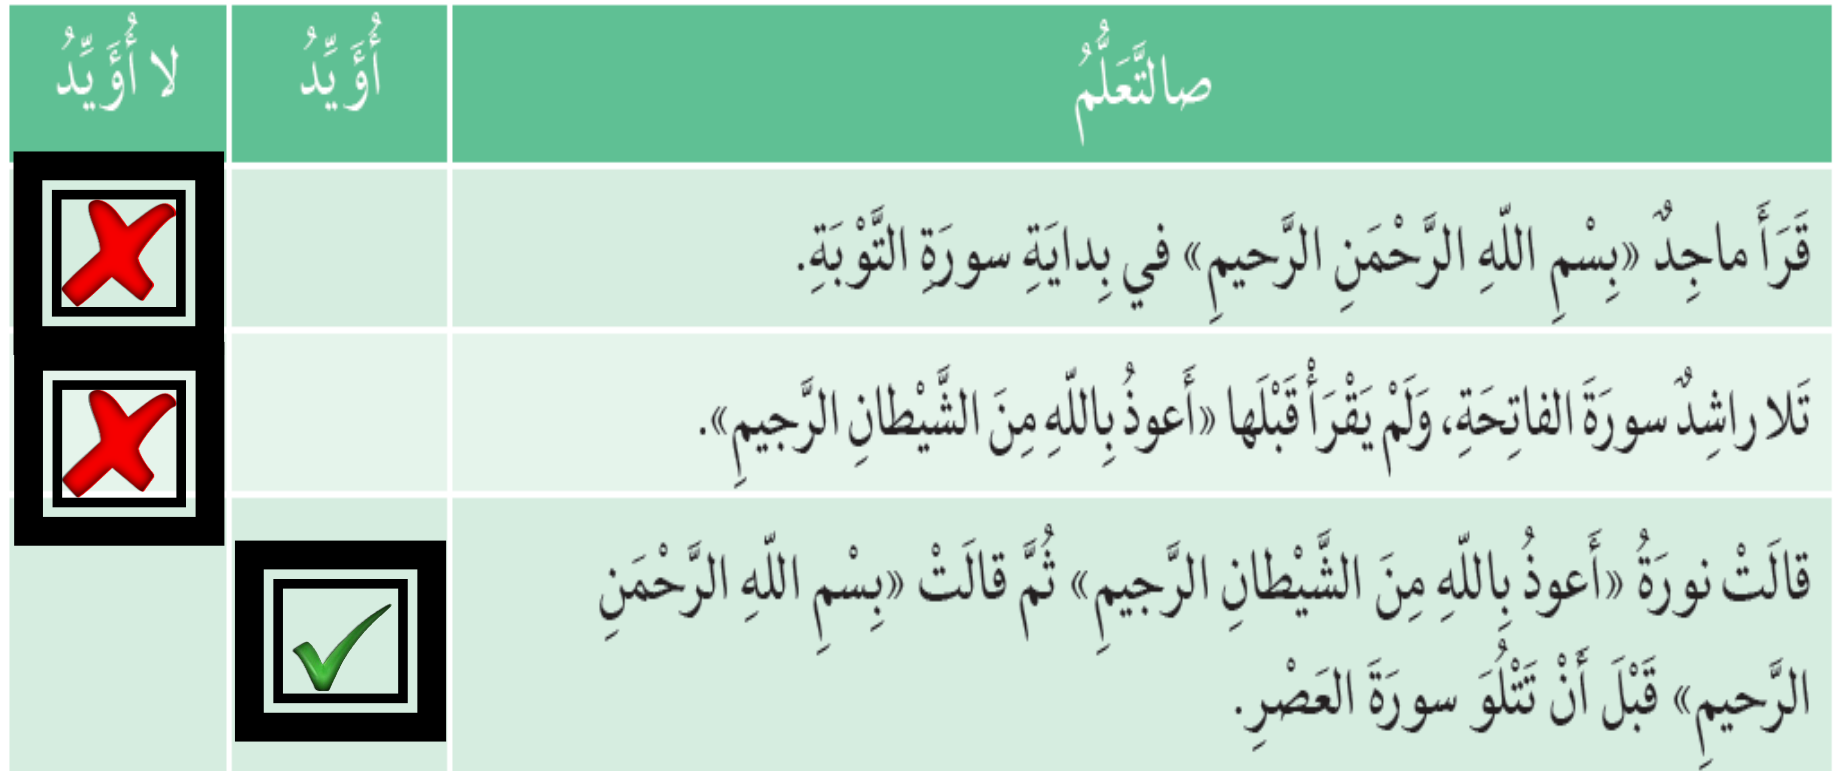 صالتَّعَلُّمُ
أُؤَيِّدُ
لا أُؤَيِّدُ
قَرَأَ ماجِدٌ «بِسْمِ اللّهِ الرَّحْمَنِ الرَّحيمِ» في بِدايَةِ سورَةِ التَّوْبَةِ.
تَلا راشِدٌ سورَةَ الفاتِحَةِ، وَلَمْ يَقْرَأْ قَبْلَها «أَعوذُ بِاللّهِ مِنَ الشَّيْطانِ الرَّجيمِ».
قالَتْ نورَةُ «أَعوذُ بِاللّهِ مِنَ الشَّيْطانِ الرَّجيمِ» ثُمَّ قالَتْ «بِسْمِ اللّهِ الرَّحْمَنِ
الرَّحيمِ» قَبْلَ أَنْ تَتْلُوَ سورَةَ العَصْرِ.